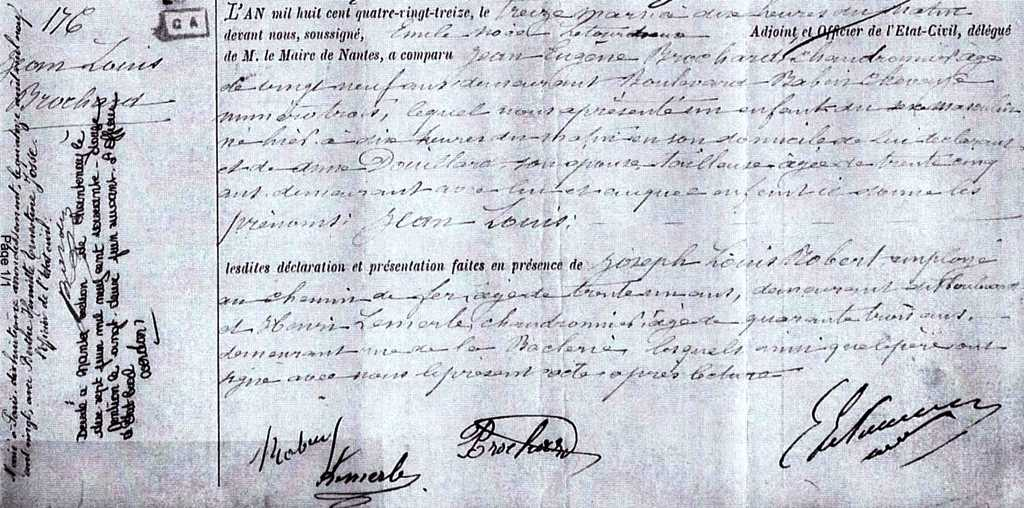 176
Jean Louis
Brochard
Marié à Paris dix huitième arrondissement, le quinze mil neuf
cent vingt, avec Camille Ernestine Josse.
l'officier de l'état civil.
Décédé à Nantes section de Chantenay le
sept juin mil neuf cent soixante
deux juin suivant. L'officier
d'Etat Civil
Page 1/1
G A
L'AN mil huit cent quatre-vingt-treize, le treize mars à dix heures du matin
devant nous, soussigné, Emile Adjoint et Officier de l'Etat-Civil, délégué
de M. le Maire de Nantes, a comparu Jean Eugène Brochard chaudronnier âgé
de vingt neuf ans demeurant Boulevard
numéro trois, lequel nous a présenté un enfant du sexe masculin
né hier à dix heures du matin en son domicile de lui déclarant
et de Anne Douillard son épouse, tailleuse âgée de trente cinq
ans demeurant avec lui et auquel enfant il donne les
prénoms: Jean Louis.
lesdites déclaration et présentation faites en présence de Joseph Louis Robert employé
au chemin de fer âgé de trente un ans, demeurant
et Henri Lemerle, chaudronnier âgé de quarante trois ans,
demeurant rue de la lesquels ainsi que le père ont
signé avec nous le présent acte après lecture
Robert
Lemerle
Brochard